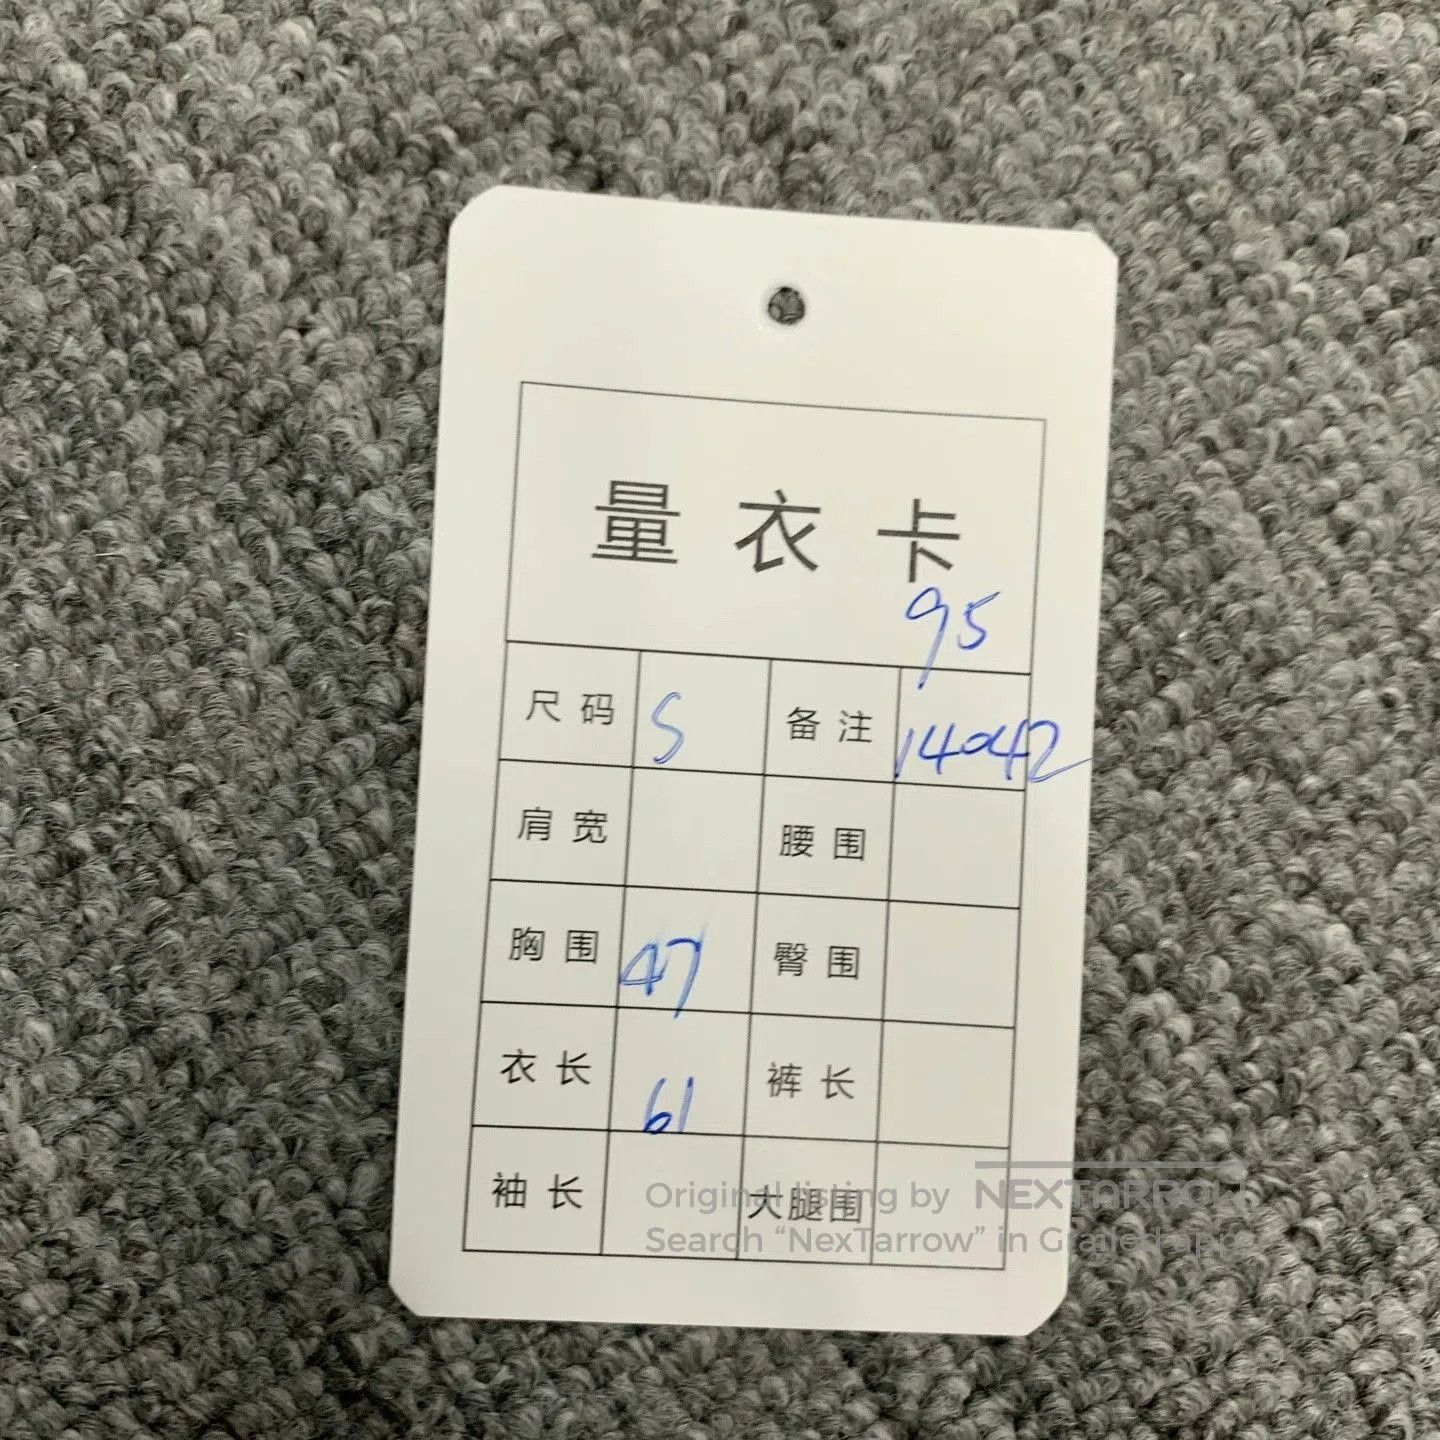 量衣卡
95
尺码 S 备注 14042
肩宽 腰围
胸围 47 臀围
衣长 61 裤长
袖长 大腿围
Original listing by NEXTARROW
Search “NexTarrow” in Grailed app